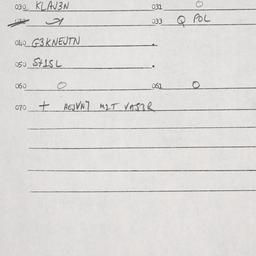 030 KLAV3N 031 O
033 Q POL
040 G3KNEUTN .
050 S71SL .
060 O 061 O
070 + AEJVN7 M2T VA572R